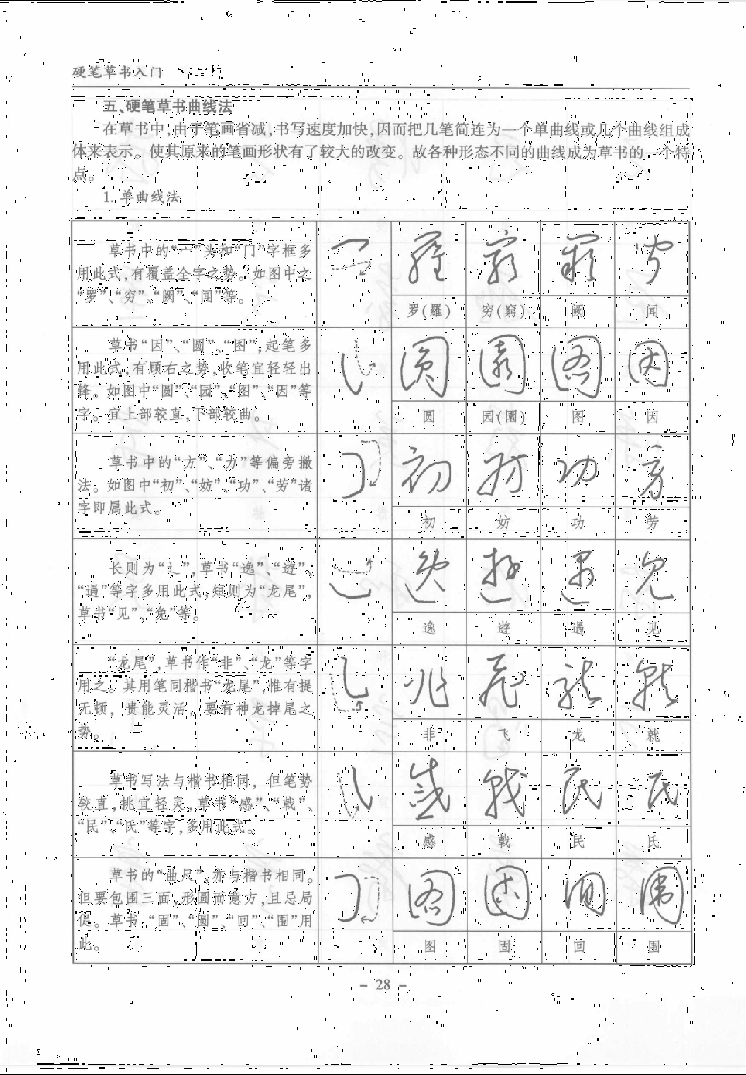 硬笔草书入门
五、硬笔草书曲线法
在草书中,由于笔画省减,书写速度加快,因而把几笔简连为一个单曲线或几个曲线组成
体来表示。使其原来的笔画形状有了较大的改变。故各种形态不同的曲线成为草书的一个特
点。
1. 单曲线法
草书中的“宀”头和“门”字框多
用此式,有覆盖全字之势。如图中之
“罗”、“穷”、“阔”、“闻”等。
罗(羅) 穷(窮) 闻
草书“因”、“圆”、“图”,起笔多
用此式,有顾右之势,收笔宜轻轻出
锋。如图中“圆”、“园”、“图”、“因”等
字。宜上部较直,下部较曲。
圆 园(園) 图 因
草书中的“方”、“力”等偏旁撇
法。如图中“初”、“妨”、“功”、“芳”诸
字即属此式。
初 妨 功 芳
长则为“辶”,草书“逸”、
等字多用此式,短则为“龙尾”,
草书“见”、等。
逸 见
“龙尾”,草书作“非”、“龙”等字
用之。其用笔同楷书“龙尾”,惟有提
无顿,贵能灵活。要有神龙掉尾之
势。
非 飞 龙 就
草书写法与楷书相同,但笔势
较直,挑宜轻尖。草书“感”、“戟”、
“民”、“氏”等字,多用此式。
感 戟 民 氏
草书的“曲尺”,势与楷书相同。
但要包围三面,形圆神境方,且忌局
促。草书,用
此。
图 固 回 围
- 28 -